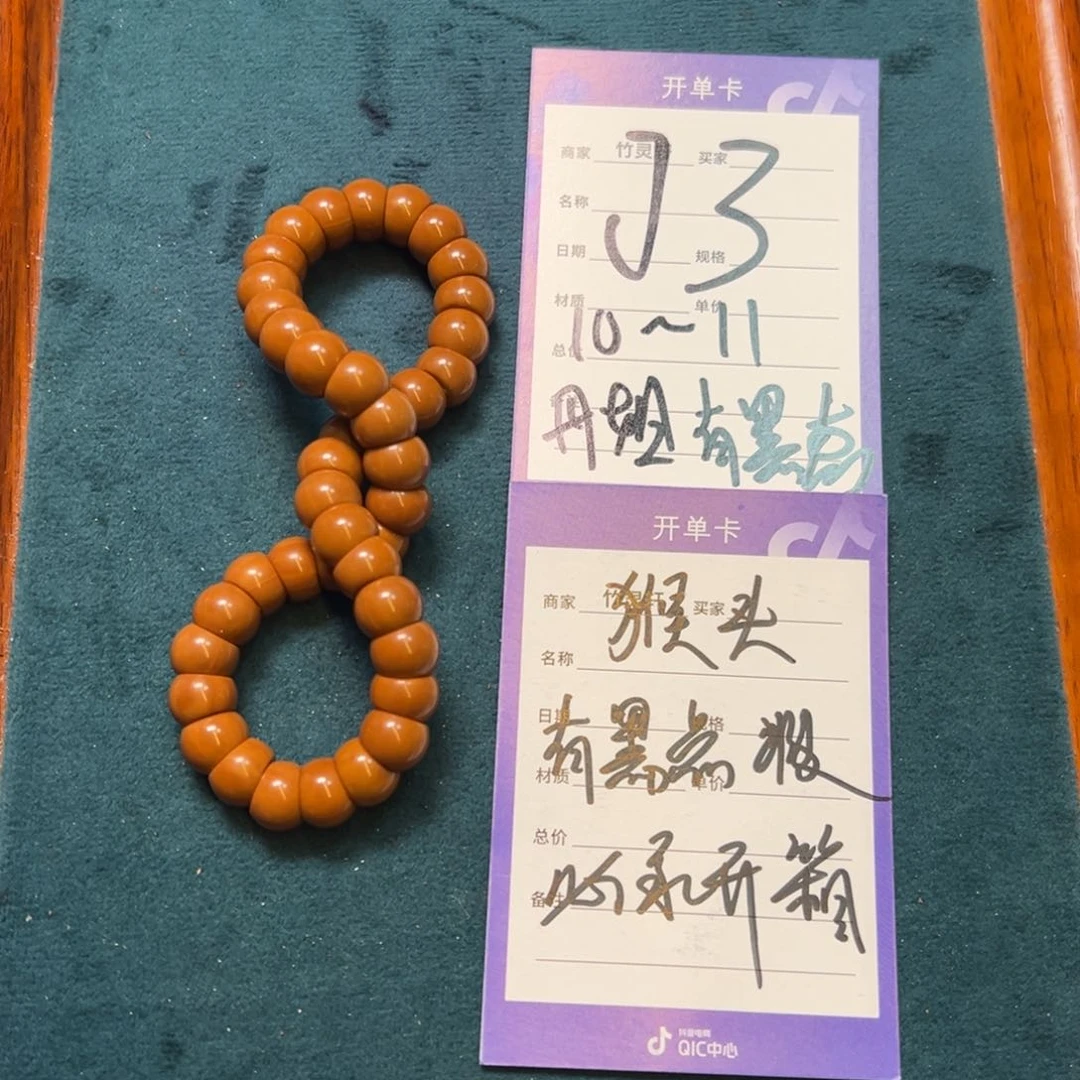 开单卡
商家 竹灵 买家
J3
名称
日期 规格
材质 单价
10~11
总价
丹 有黑点
开单卡
商家 竹灵轩 买家
猴头
名称
日期 规格
有黑点 瑕
材质 单价
总价
备注
必录开箱
抖音电商
QIC中心